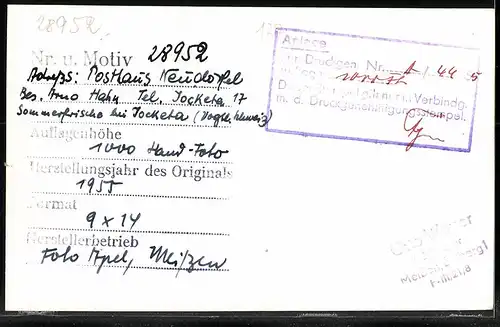 28952
Nr. u. Motiv 28952
Adreßs: Posthaus Neudörfel
Bes. Arno Hahn Tel. Jocketa 17
Sommerfrische bei Jocketa (Vogtl. Schweiz)
Auflagenhöhe
1000 Hand-Foto
Herstellungsjahr des Originals
1955
Format
9 x 14
Herstellerbetrieb
Foto Apel, Meißen
Anlage
Druckgen. Nr. 1/44 5
gilt nur in Verbindg.
m. d. Druckgenehmigungsstempel.